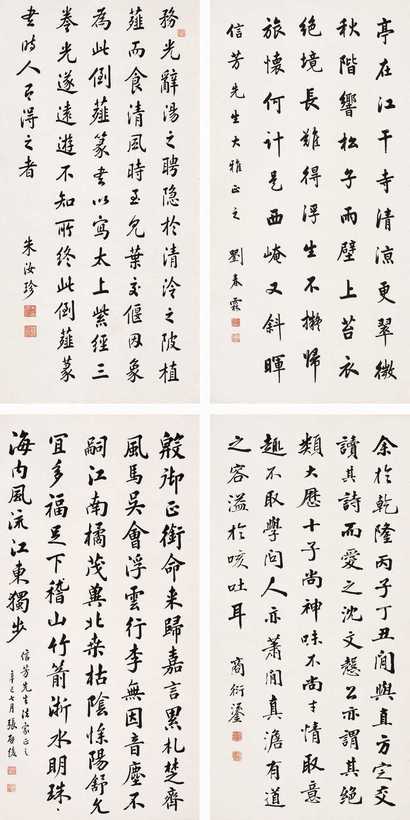 亭在江干寺清涼更翠微
秋階響松子雨壁上苔衣
絕境長難得浮生不擬歸
旅懷何計是西崦又斜暉
信芳先生大雅正之 劉春霖
務光辭湯之聘隐於清泠之陂植
薤而食清風時至見葉交偃因象
為此倒薤篆書以寫太上紫經三
卷光遂遠遊不知所終此倒薤篆
書時人石得之者 朱汝珍
余於乾隆丙子丁丑間與直方定交
讀其詩而愛之沈文慤公亦謂其絕
類大歷十子尚神味不尚才情取意
趣不取學問人亦蕭閒真澹有道
之容溢於咳吐耳 商衍鎏
殷御正銜命来歸嘉言累札楚齊
風馬吳會浮雲行李無因音塵不
嗣江南橘茂冀北桑枯陰慘陽舒允
宜多福足下稽山竹箭浙水明珠
海内風流江東獨步 信芳先生法家正之
辛巳七月張啟後